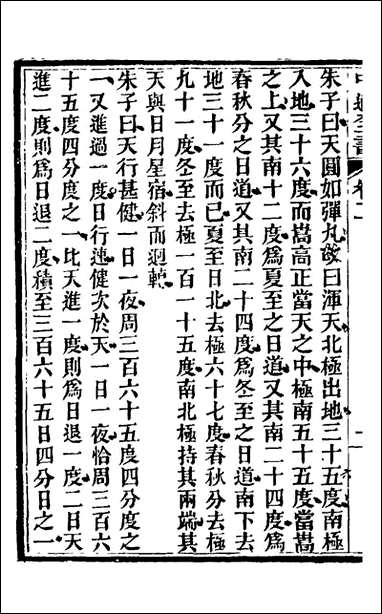 朱子曰天圓如彈丸故曰渾天北極出地三十五度南極
入地三十六度而嵩高正當天之中極南五十五度當嵩
之上又其南十二度爲夏至之日道又其南二十四度爲
春秋分之日道又其南二十四度爲冬至之日道南下去
地三十一度而已夏至日北去極六十七度春秋分去極
九十一度冬至去極一百一十五度南北極持其兩端其
天與日月星宿斜而迴轉
朱子曰天行甚健一日一夜周三百六十五度四分度之
一又進過一度日行速健次於天一日一夜恰周三百六
十五度四分度之一比天進一度則爲日退一度二日天
進二度則爲日退二度積至三百六十五日四分日之一